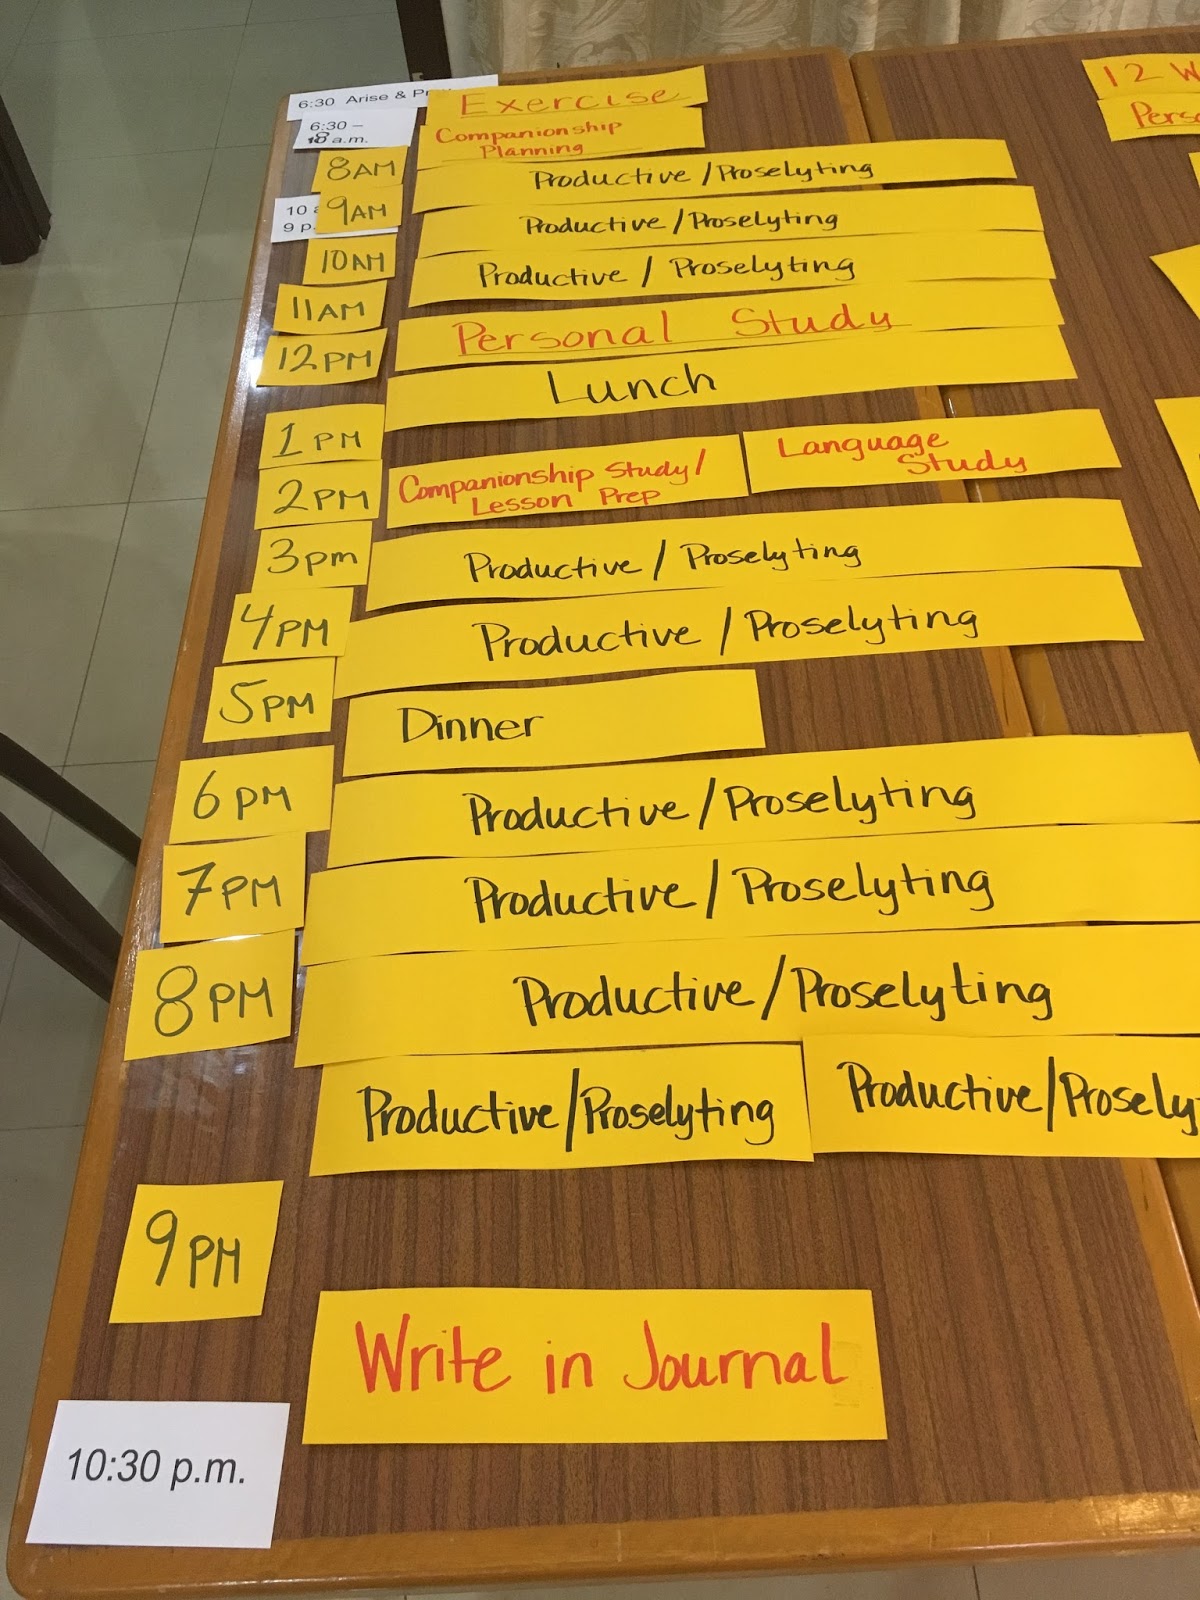 6:30 Arise &
Exercise
6:30 –
a.m.
Companionship
Planning
8AM
Productive / Proselyting
10
9 p.
9AM
Productive / Proselyting
10AM
Productive / Proselyting
11AM
Personal Study
12PM
Lunch
1PM
2PM
Companionship Study /
Lesson Prep
Language
Study
3pm
Productive / Proselyting
4PM
Productive / Proselyting
5PM
Dinner
6PM
Productive / Proselyting
7PM
Productive / Proselyting
8PM
Productive / Proselyting
Productive / Proselyting
Productive / Prosely
9PM
Write in Journal
10:30 p.m.
12 W
Pers